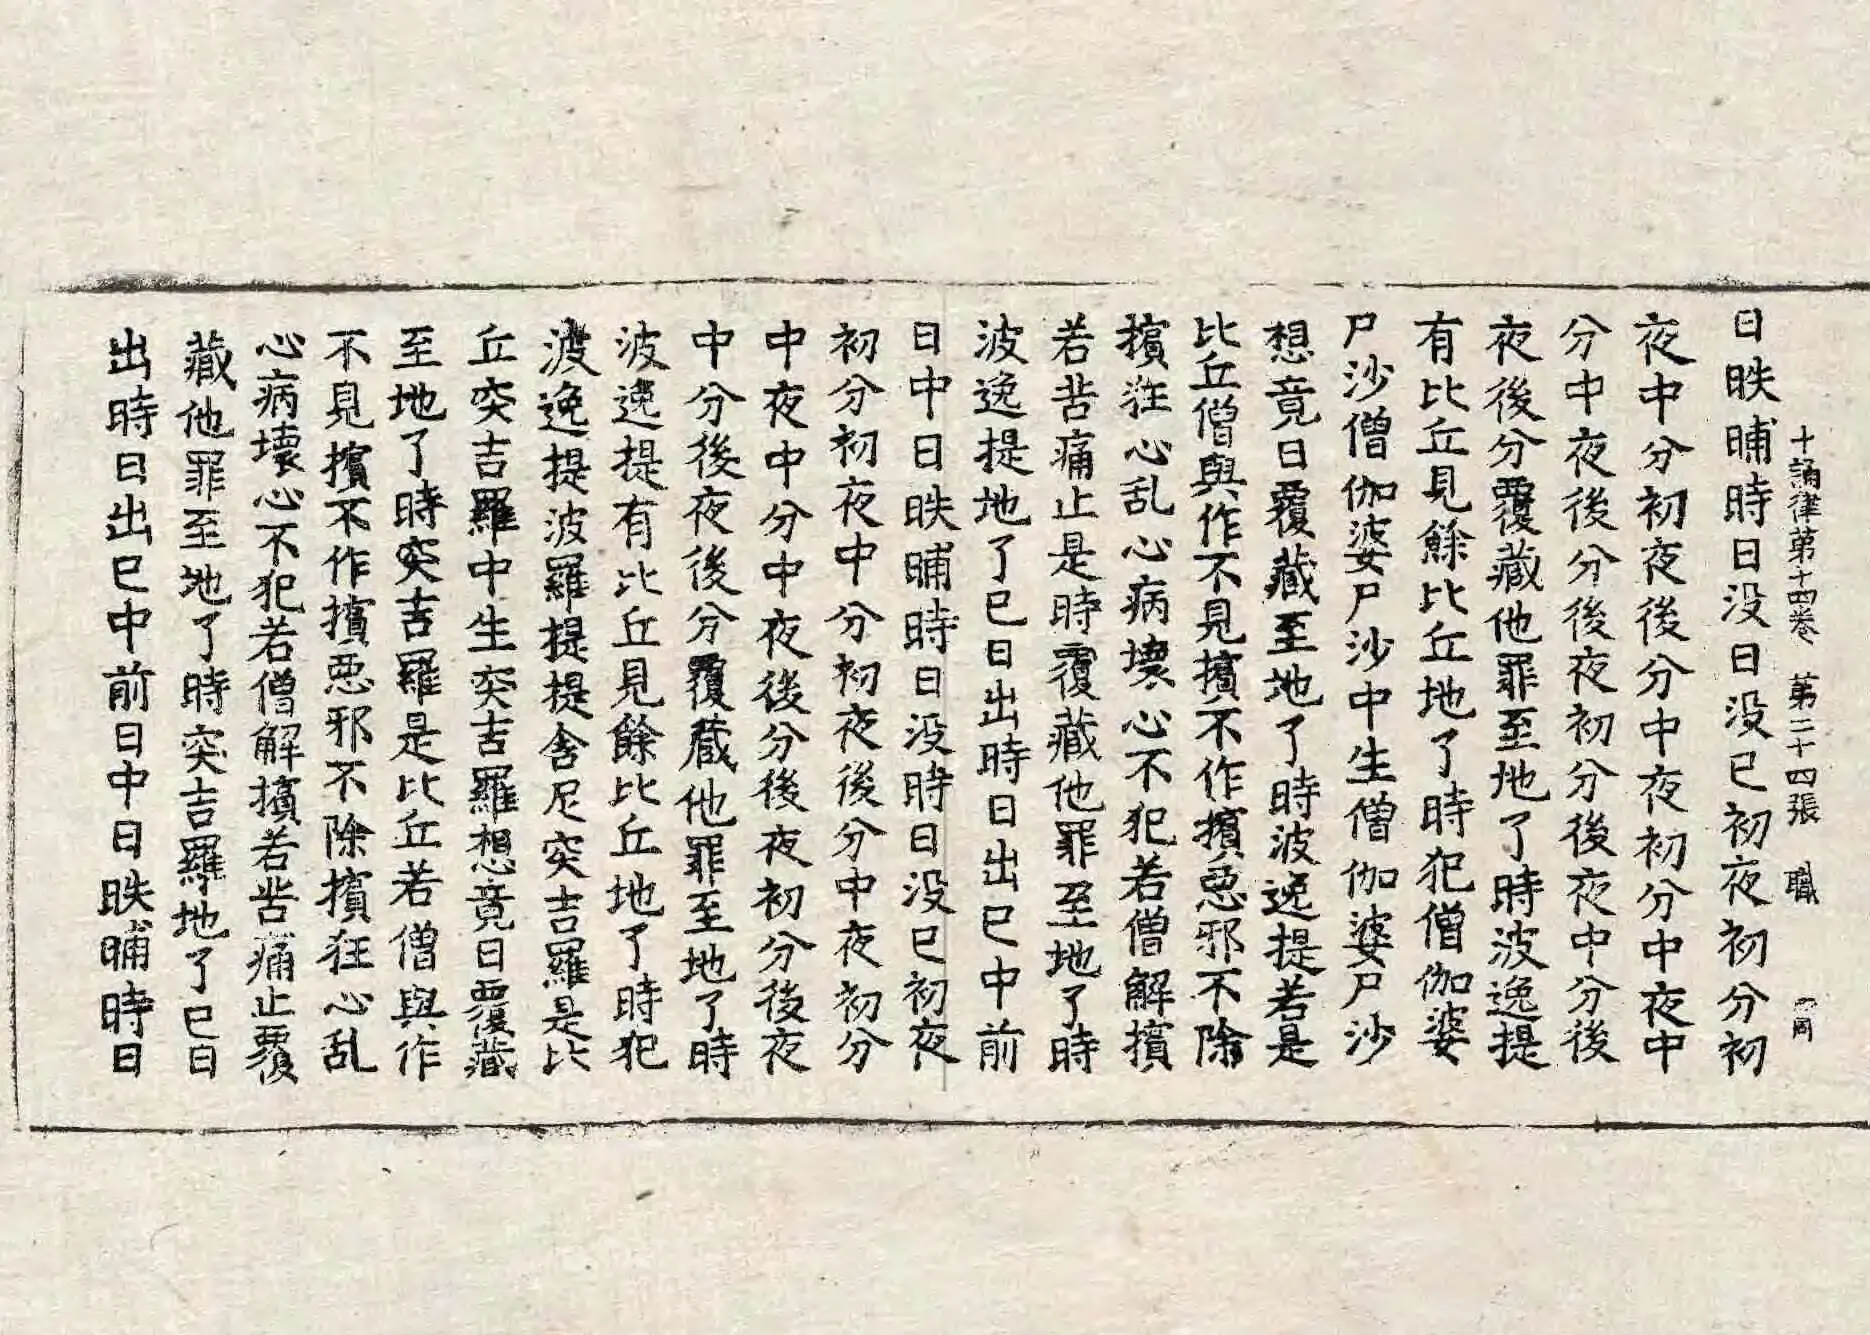 十誦律第十四卷 第二十四張 職
日昳晡時日没日没已初夜初分初
夜中分初夜後分中夜初分中夜中
分中夜後分後夜初分後夜中分後
夜後分覆藏他罪至地了時波逸提
有比丘見餘比丘地了時犯僧伽婆
尸沙僧伽婆尸沙中生僧伽婆尸沙
想竟日覆藏至地了時波逸提若是
比丘僧與作不見擯不作擯惡邪不除
擯狂心乱心病壞心不犯若僧解擯
若苦痛止是時覆藏他罪至地了時
波逸提地了已日出時日出已中前
日中日昳晡時日没時日没已初夜
初分初夜中分初夜後分中夜初分
中夜中分中夜後分後夜初分後夜
中分後夜後分覆藏他罪至地了時
波逸提有比丘見餘比丘地了時犯
波逸提波羅提提舍尼突吉羅是比
丘突吉羅中生突吉羅想竟日覆藏
至地了時突吉羅是比丘若僧與作
不見擯不作擯惡邪不除擯狂心乱
心病壞心不犯若僧解擯若苦痛止覆
藏他罪至地了時突吉羅地了已日
出時日出已中前日中日昳晡時日